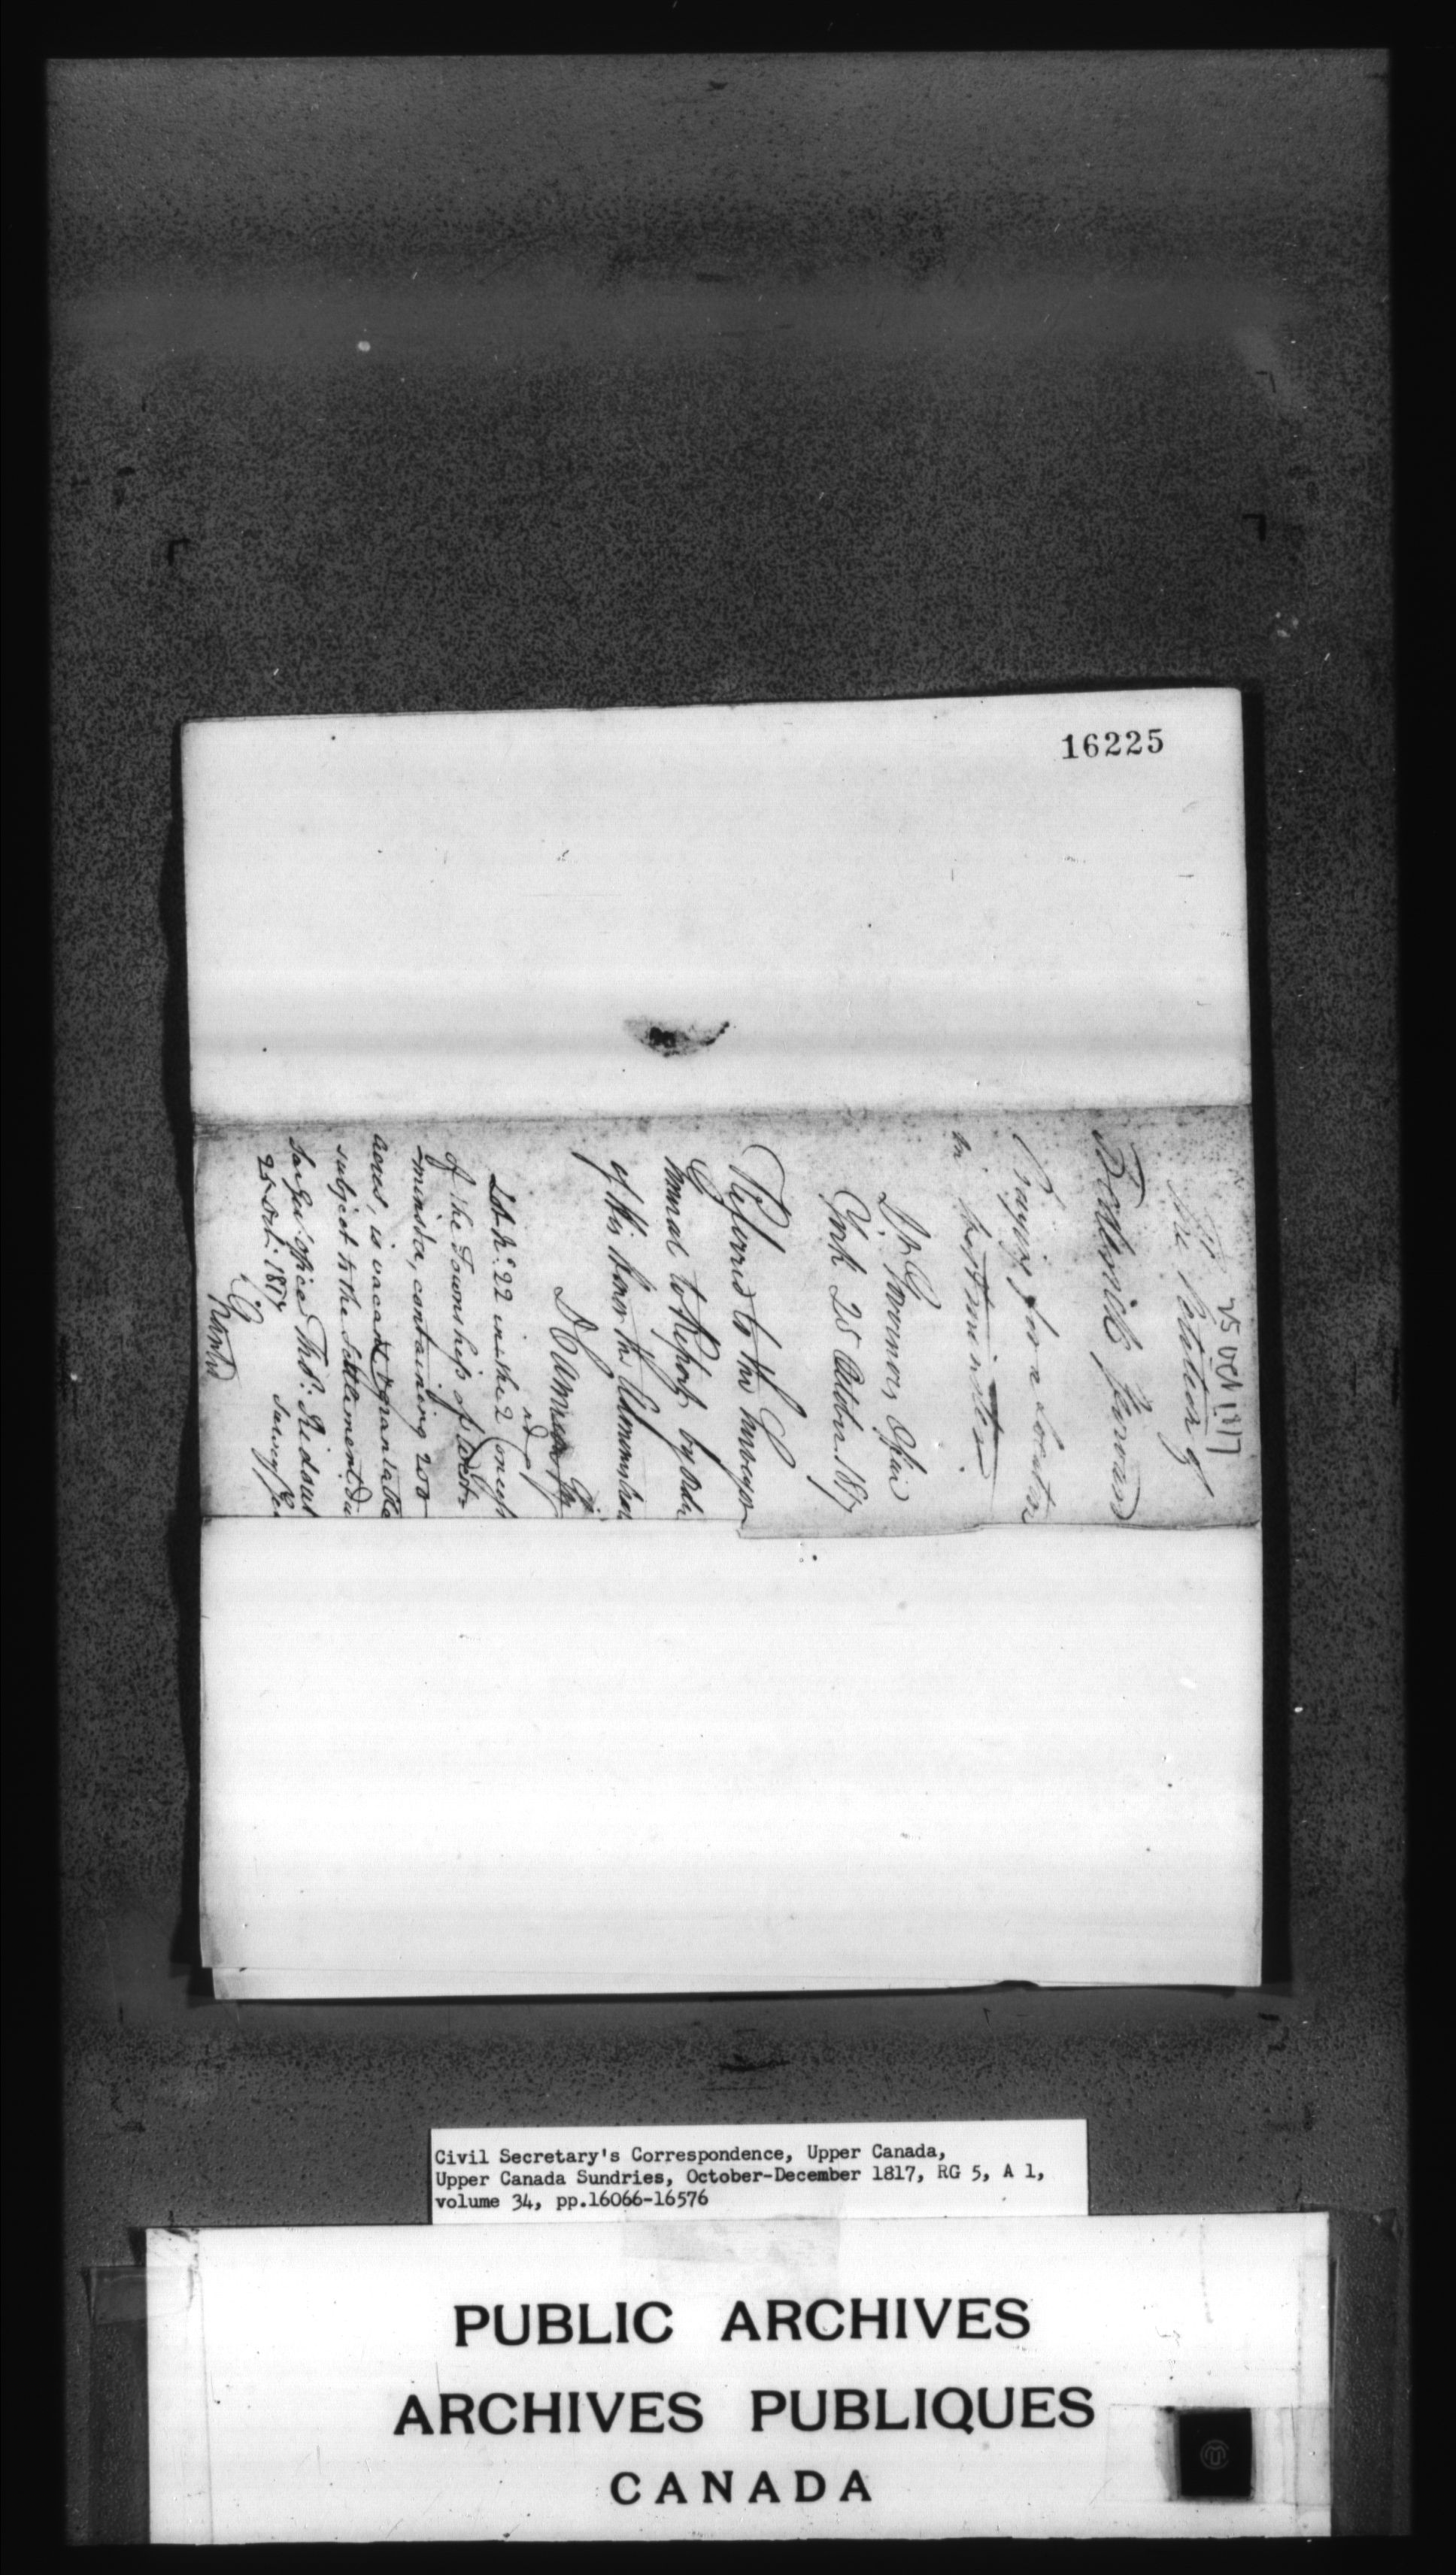 16225
25 Oct 1817
The Petition of
Frederick
Praying for a Location
in Westminster.
Lt. Governors Office
York 25 October 1817
Referred to the Surveyor
General to Report by Order
of His Honor the Administrator
Lot No. 22 in the 2nd Concession
of the Township of West-
-minster, containing 200
acres, is vacant & grantable
subject to the Settlement
Sur. Gen. office Thos. Ridout
25 Oct. 1817 Survey Gen
Civil Secretary's Correspondence, Upper Canada,
Upper Canada Sundries, October-December 1817, RG 5, A 1,
volume 34, pp.16066-16576
PUBLIC ARCHIVES
ARCHIVES PUBLIQUES
CANADA